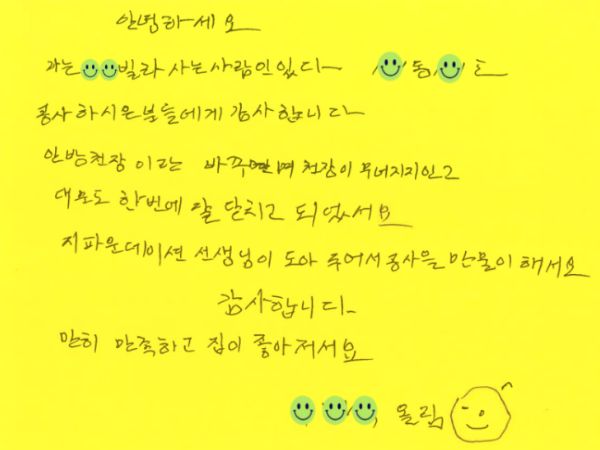 안녕하세요
저는 빌라 사는 사람인있다 동
공사 하시은분들에게 감사합니다
안방천장 이랑 바꾸면며 천장이 무너지지안고
대문도 한번에 잘 닫치고 되었서요
지파운데이션 선생님이 도아 주어서 공사을 만물이 해서요
감사합니다
만히 만족하고 집이 좋아저서요
올림